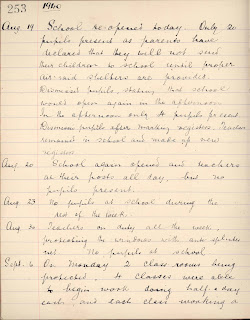 253 1940
Aug 19 School re-opened today. Only 20
pupils present as parents have
declared that they will not send
their children to School until proper
air-raid shelters are provided.
Dismissed pupils, stating that school
would open again in the afternoon.
In the afternoon only 4 pupils present.
Dismissed pupils after marking registers. Teachers
remained in school and made up new
registers.
Aug. 20 School again opened and teachers
at their posts all day, but no
pupils present.
Aug 23 No pupils at school during the
rest of the week.
Aug 30 Teachers on duty all the week,
protecting the windows with anti splinter
net. No pupils at school.
Sept. 6 On Monday 2 class rooms being
protected, 4 classes were able
to begin work doing half a day
each, and each class working a